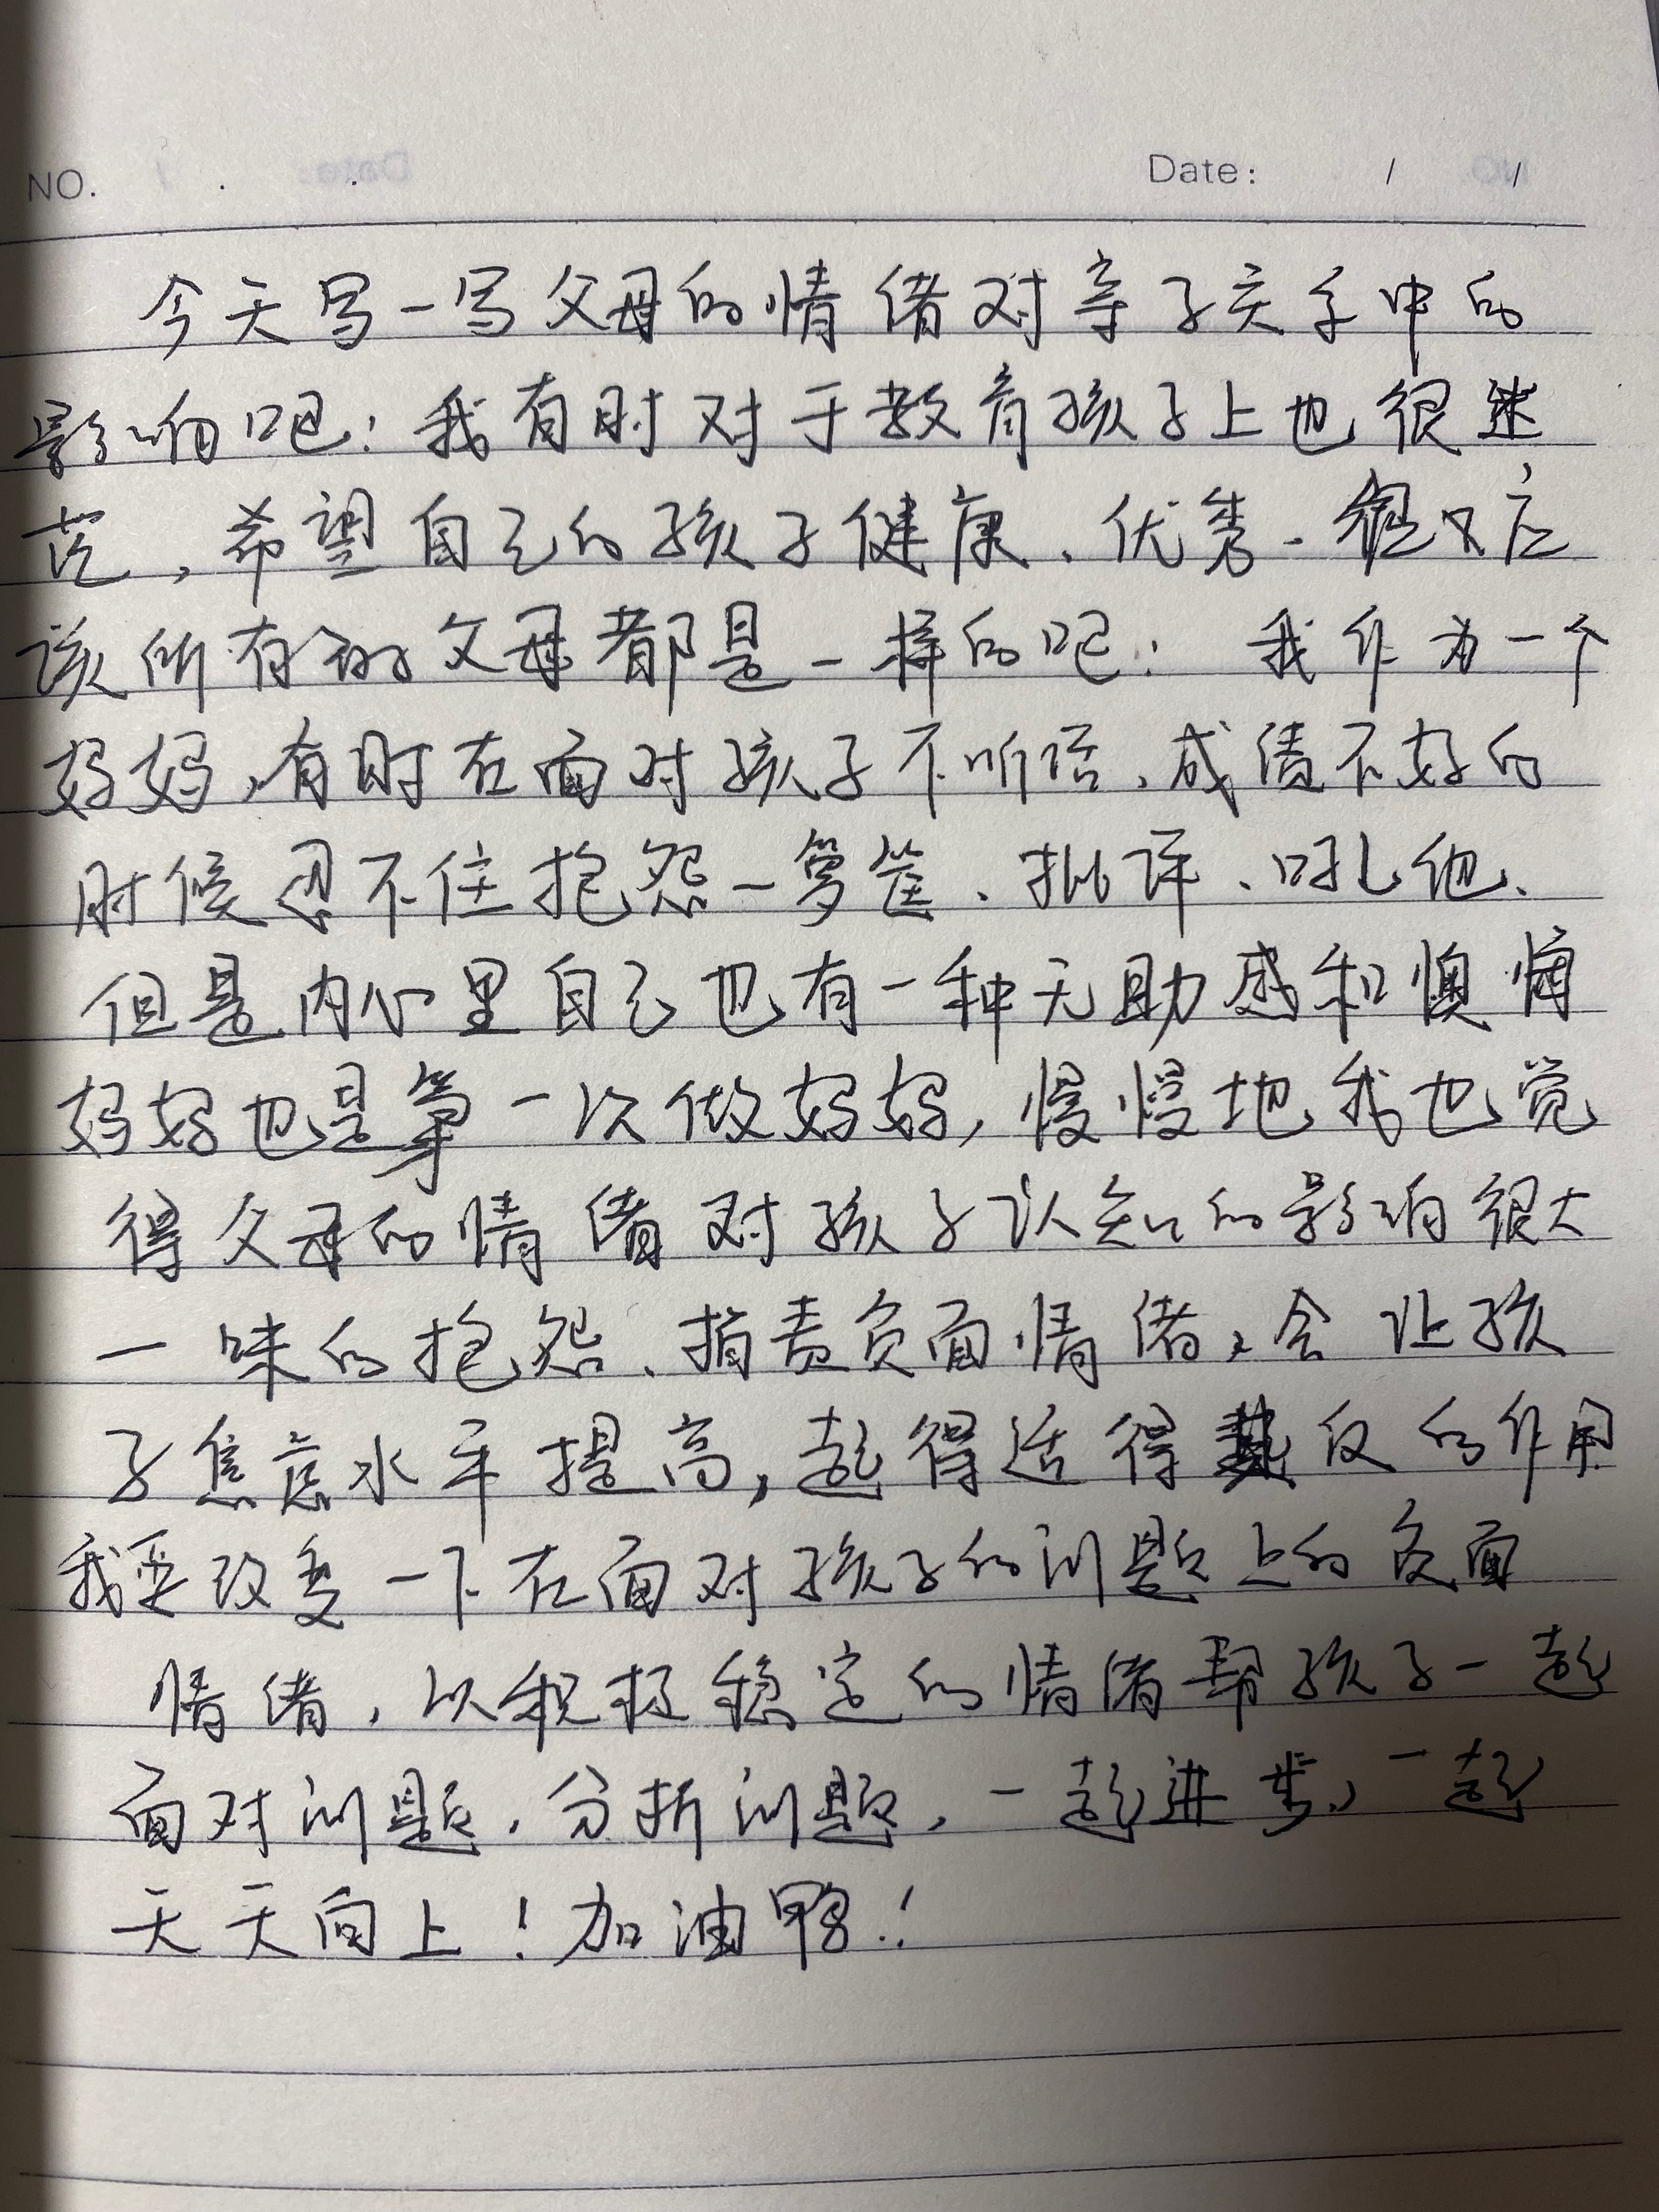 NO.
Date: / /
今天写一写父母的情绪对亲子关系中的
影响吧!我有时对于教育孩子上也很迷
茫,希望自己的孩子健康、优秀、应
该所有的父母都是一样的吧! 我作为一个
妈妈,有时在面对孩子不听话、成绩不好的
时候忍不住抱怨一箩筐、批评、吼他、
但是内心里自己也有一种无助感和懊悔
妈妈也是第一次做妈妈,慢慢地我也觉
得父母的情绪对孩子认知的影响很大
一味的抱怨、指责负面情绪,会让孩
子焦虑水平提高,起得适得其反的作用
我要改变一下在面对孩子的问题上的负面
情绪,以积极稳定的情绪帮孩子一起
面对问题,分析问题,一起进步、一起
天天向上!加油鸭!